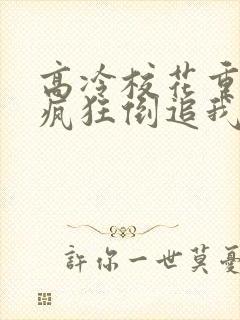 高冷校花重
疯狂倒追我
許你一世莫憂